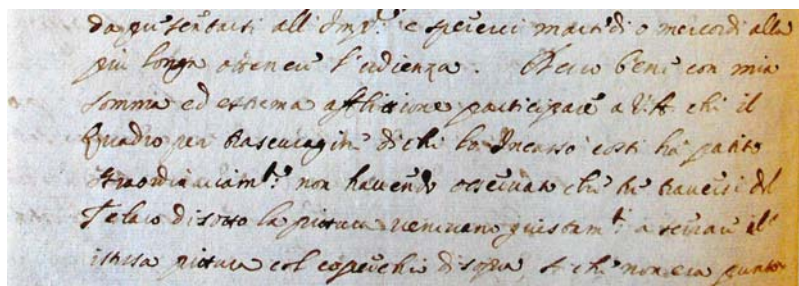 da presentarsi all'Imp.re e spererei martidi o mercordi alla
piu longa ottenere l'udienza. Devo bensi con mia
somma ed estrema afflitione participare a V.A. che il
Quadro per trascuragine di chi lo Incassò costi ha patito
straordinariam.te non havendo osservato che ne traversi del
Telaio di sotto la pittura venivano giustam.te a
istessa pittura col coperchio di sopra, che non era punto